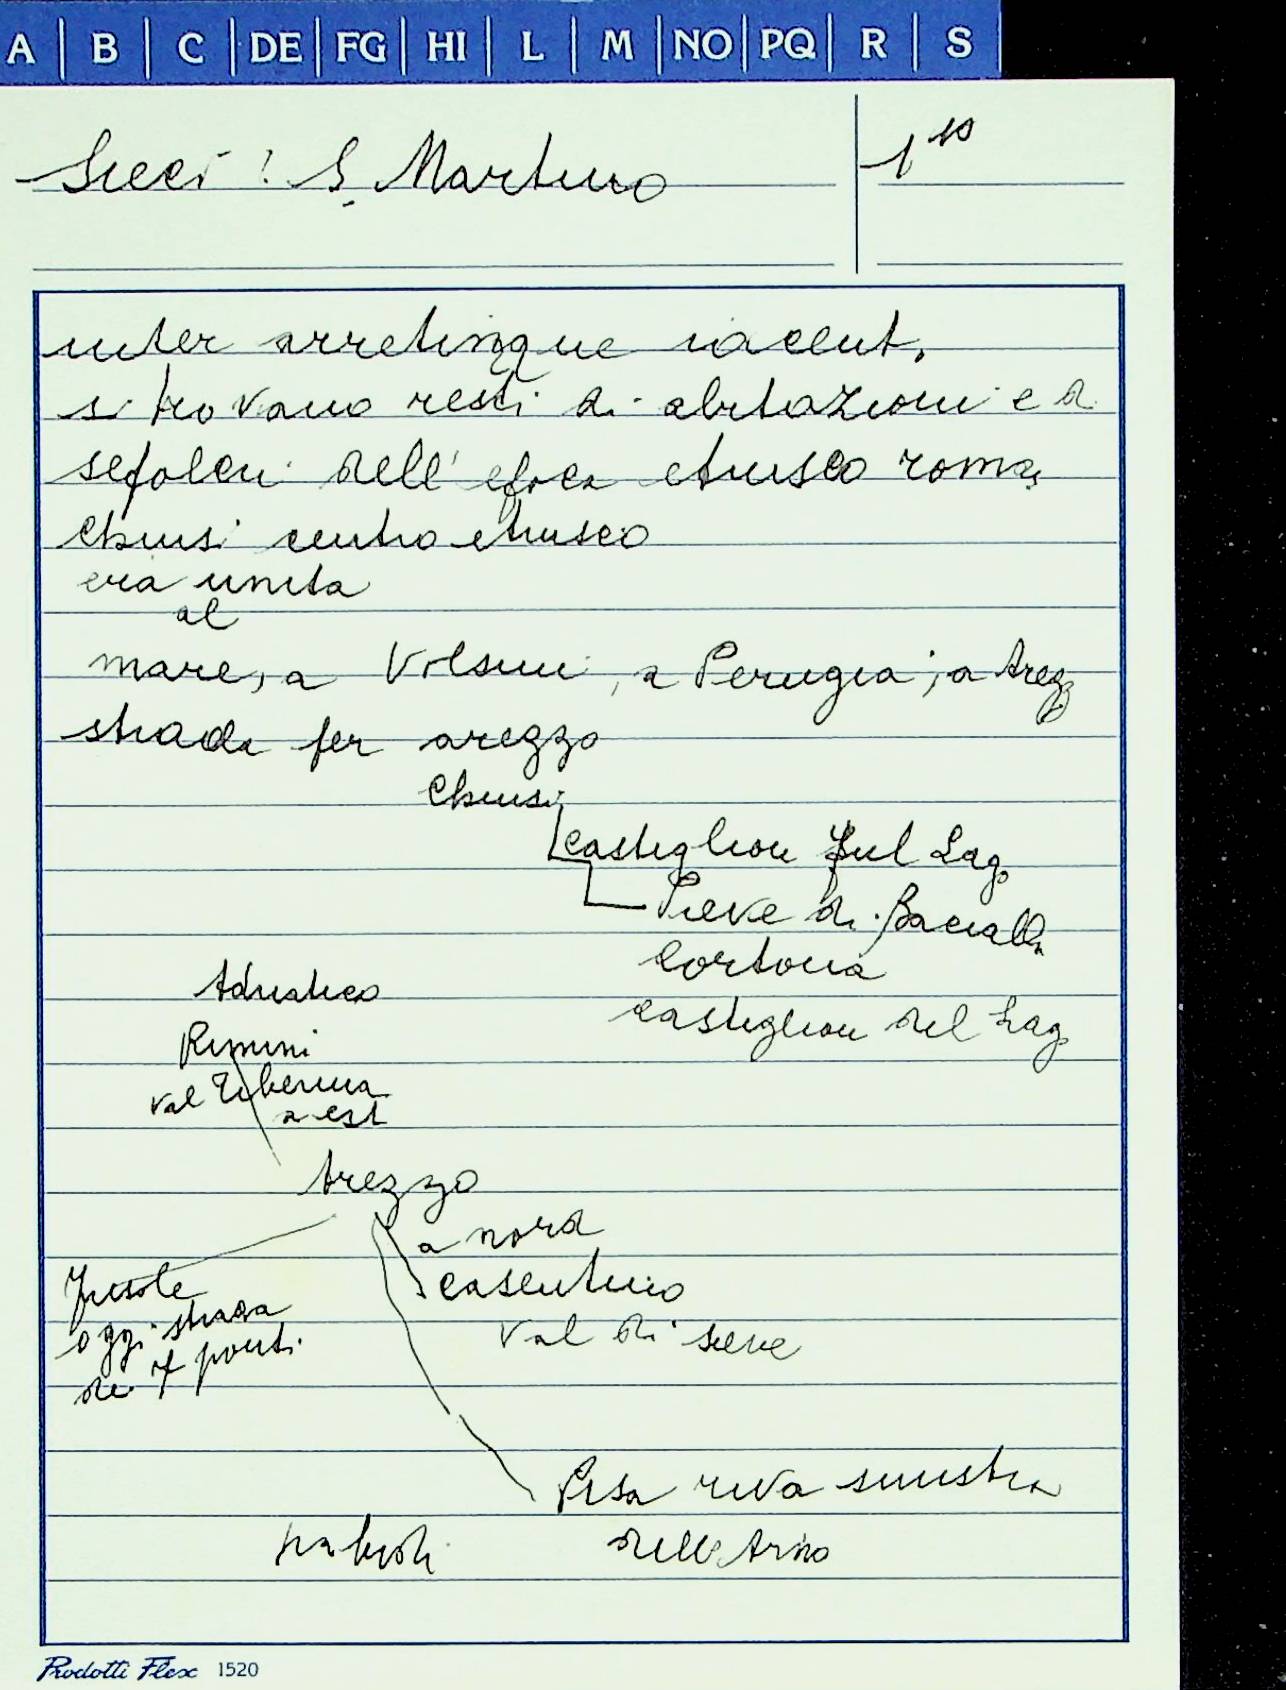 A B C DE FG HI L M NO PQ R S
Sieci: S. Martino
1 10
inter arretinque iacent.
si trovano resti di abitazioni e di
sepolcri dell'epoca etrusco roma
Chiusi centro etrusco
era unita
al
mare, a Volsini, a Perugia, a Arez
strada per arezzo
Chiusi
Castiglion sul Lag.
Pieve di Bacialla
Cortona
Castiglion del Lag
Adriatico
Rimini
val Tiberina
a est
Arezzo
a nord
Casentino
Val di sieve
Fiesole
oggi strada
dei 7 ponti
Pisa riva sinistra
dell'Arno
Prodotti Flex 1520